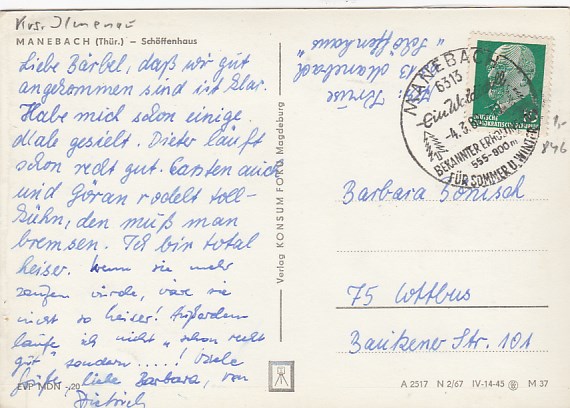 Krs. Ilmenau
MANEBACH (Thür.) – Schöffenhaus
Liebe Bärbel, daß wir gut
angekommen sind ist klar.
Habe mich schon einige
Male gesielt. Dieter läuft
schon recht gut. Carsten auch
und Göran rodelt toll-
kühn, den muß man
bremsen. Ich bin total
heiser. Wenn sie mehr
würde, wär sie
nicht so heiser! Außerdem
laufe ich nicht "schon recht
gut" sondern .....! Viele
Grüße, liebe Barbara, von
Dietrich
EVP MDN -,20
Verlag KONSUM FOTO Magdeburg
6313 Manebach
"Schöffenhaus"
MANEBACH
6313
-4.3.
BEKANNTER ERHOLUNGSORT
555-800m
FÜR SOMMER U. WINTER
DEUTSCHE
DEMOKRATISCHE REPUBLIK
1,-
846
Barbara Bönisch
75 Cottbus
Bautzener Str. 101
A 2517 N 2/67 IV-14-45 M 37